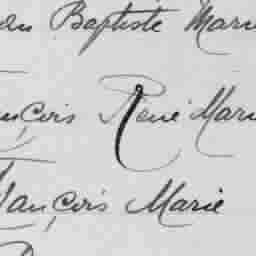 Baptiste Marie
François René Marie
François Marie